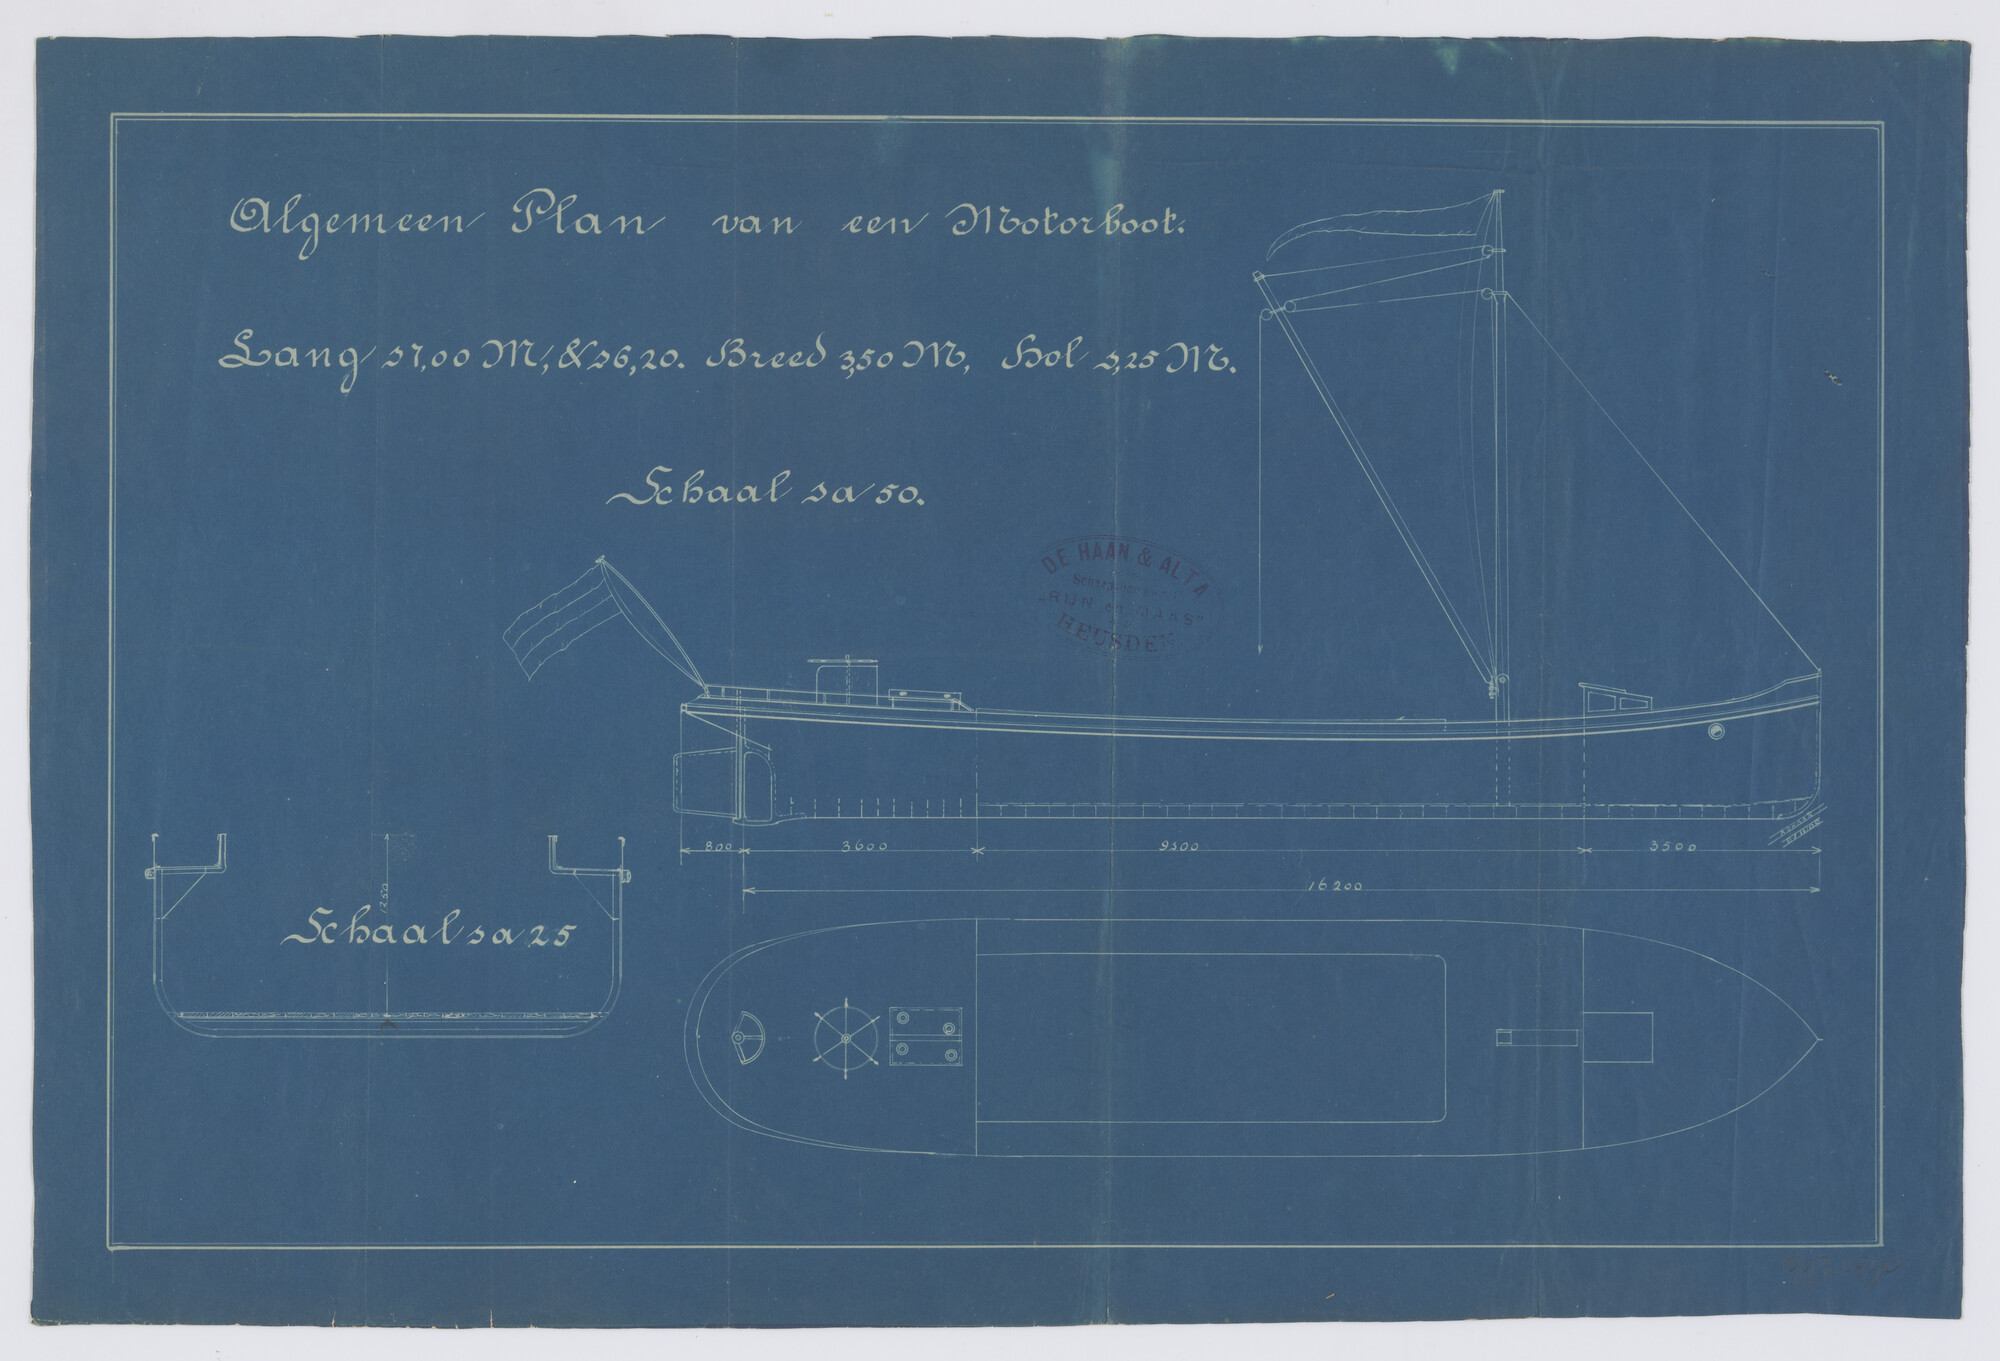 Algemeen Plan van een Motorboot.
Lang 17,00 M, & 16,20. Breed 3,50 M, Hol 1,25 M.
Schaal 1 a 50.
DE HAAN & ALTA
"RIJN en MAAS"
HEUSDEN
800 3600 9100 3500
16200
1250
Schaal 1 a 25